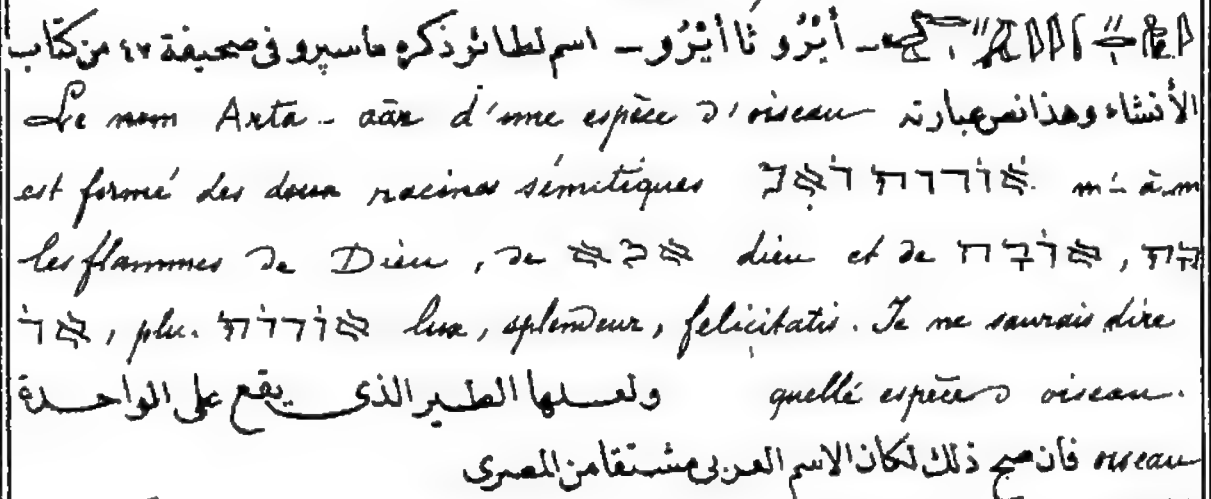 ـ أَيْرُو ثَا أَيْرُو ـ اسم لطائر ذكره ماسپرو فى صحيفة ٤٧ من كتاب
الأنشاء وهذا نص عبارته Le nom Arta-aār d'une espèce d'oiseau
est formé des deux racines sémitiques אורות m-à-m
les flammes de Dieu, de dieu et de
, plu. אורות lux, splendeur, felicitatis. Je ne saurais dire
quellé espèce d oiseau. ولعلها الطير الذى يقع على الواحدة
oiseau فان صح ذلك لكان الاسم العربى مشتقا من المصرى